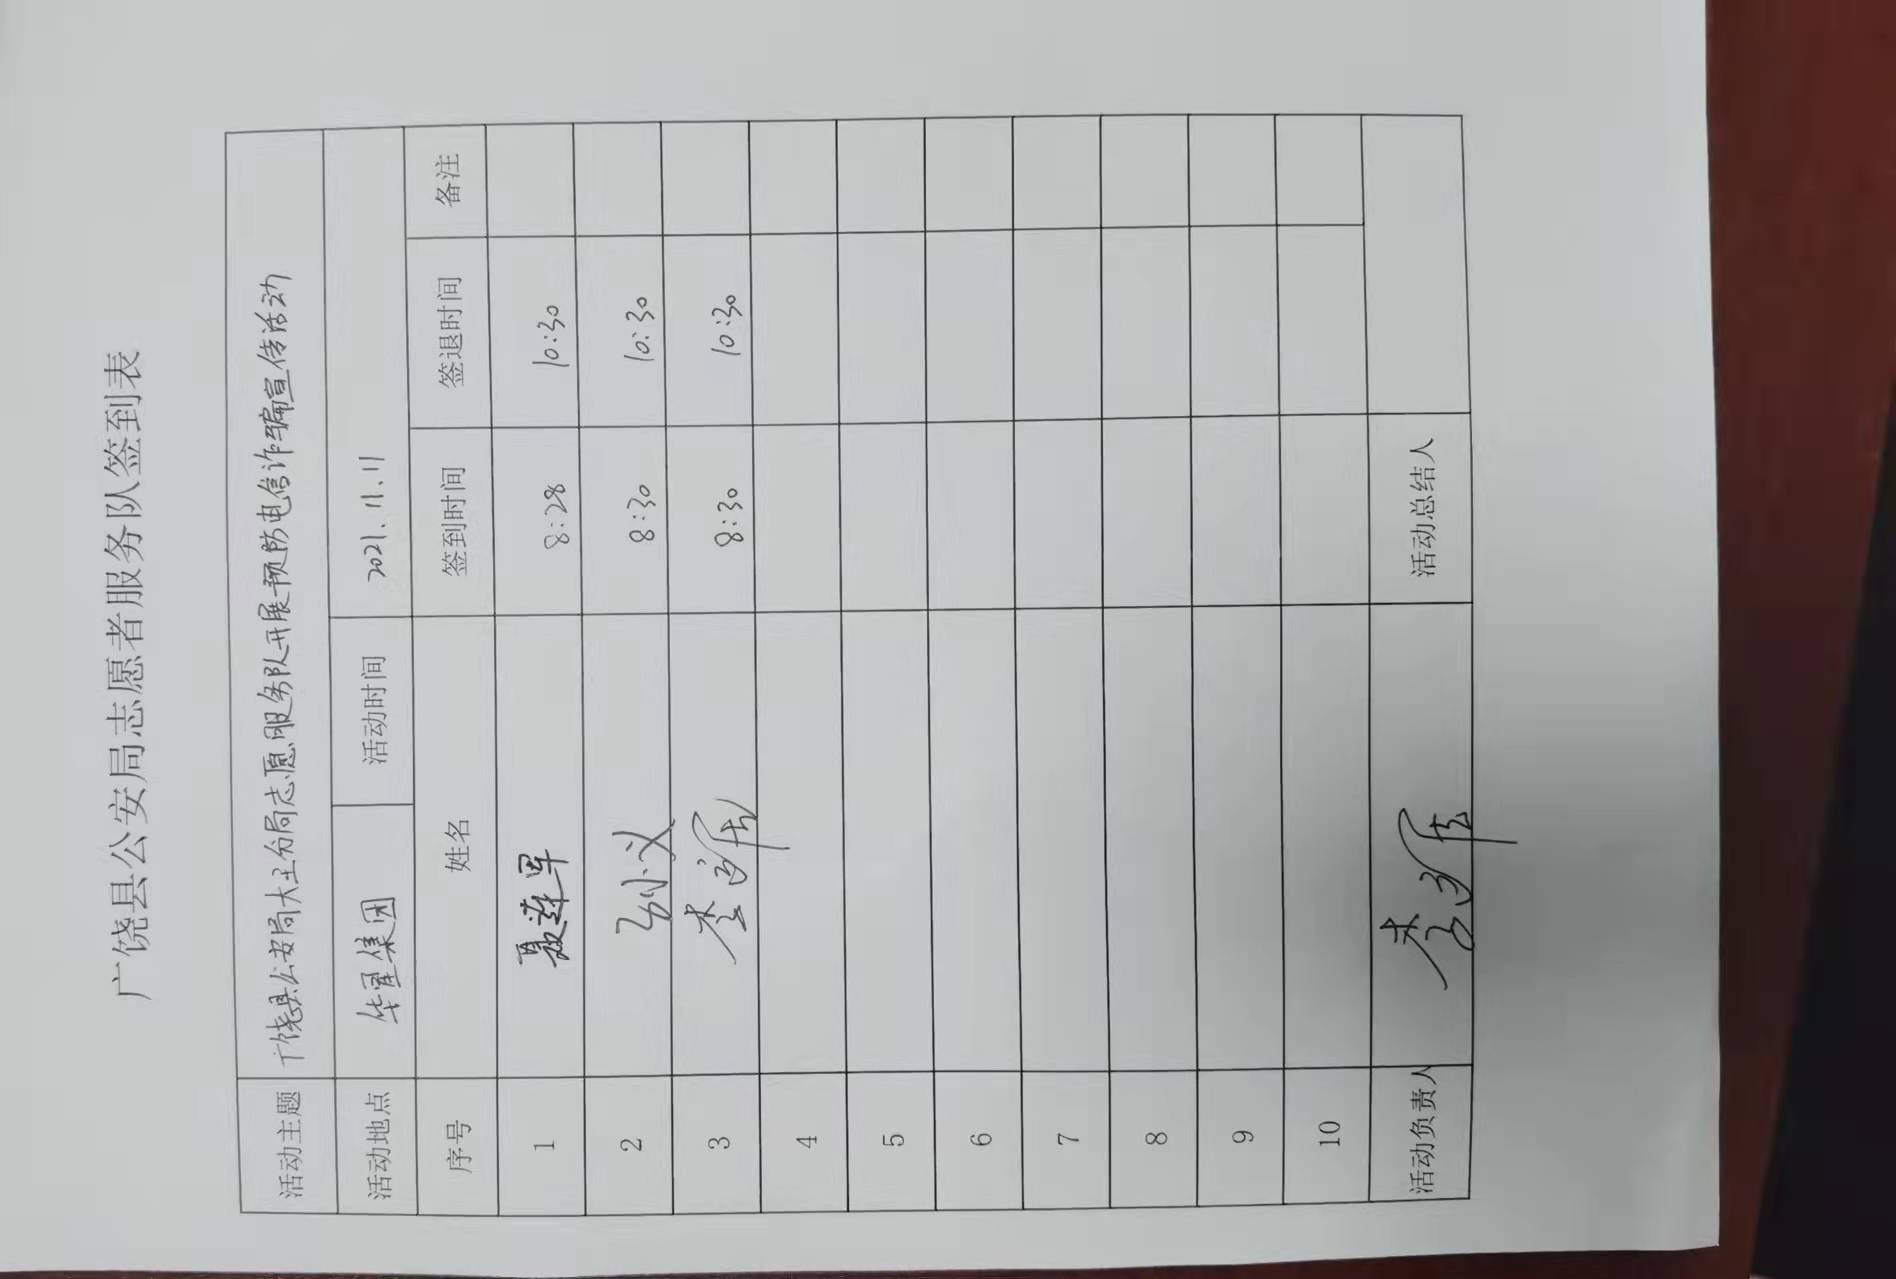 广饶县公安局志愿者服务队签到表
活动主题 广饶县公安局大王分局志愿服务队开展预防电信诈骗宣传活动
活动地点 华星集团 活动时间 2021.11.11
序号 姓名 签到时间 签退时间 备注
1 聂莲军 8:28 10:30
2 8:30 10:30
3 8:30 10:30
4
5
6
7
8
9
10
活动负责人 活动总结人